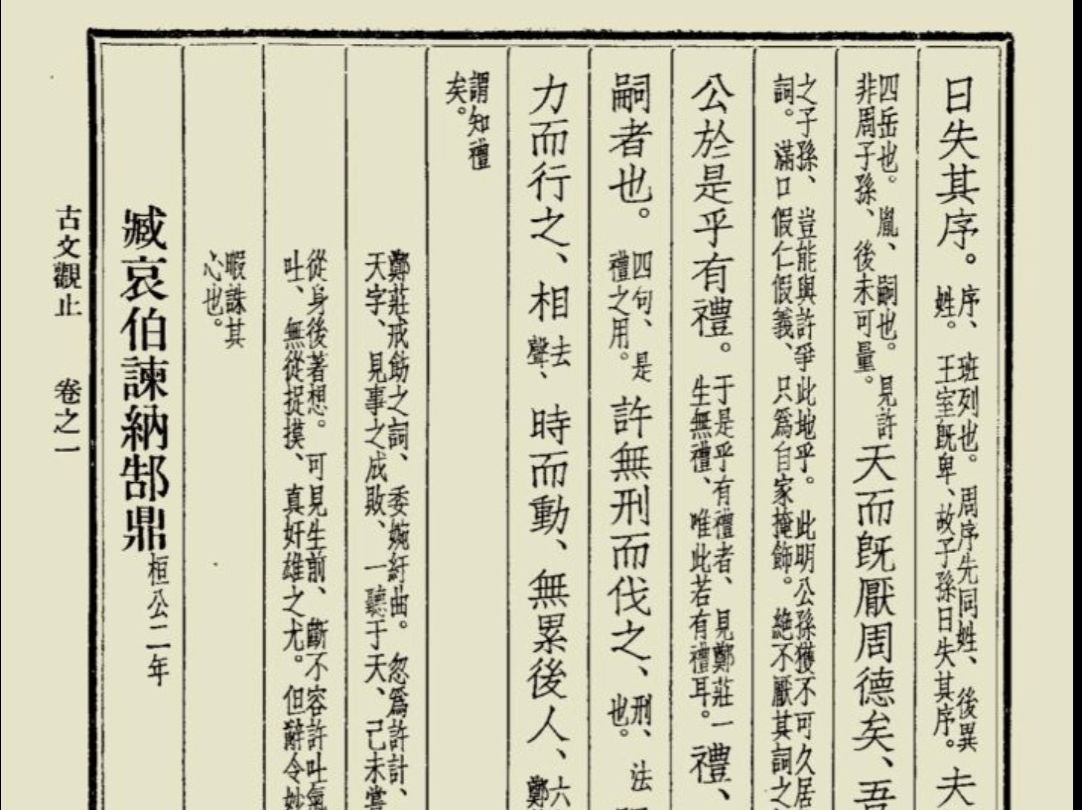 日失其序。序、班列也。周序先同姓、後異姓。王室旣卑、故子孫日失其序。夫
四岳也。胤、嗣也。見許
非周子孫、後未可量。天而旣厭周德矣、吾
之子孫、豈能與許爭此地乎。此明公孫獲不可久居
詞。滿口假仁假義、只爲自家掩飾。絶不厭其詞之
公於是乎有禮。于是乎有禮者、見鄭莊一生無禮、唯此若有禮耳。禮、
嗣者也。四句、是禮之用。許無刑而伐之、刑、法也。
力而行之、相去聲、時而動、無累後人、六鄭
謂知禮
矣。
鄭莊戒飭之詞、委婉紆曲。忽爲許計、
天字、見事之成敗、一聽于天、己未嘗
從身後著想。可見生前、斷不容許吐氣
吐、無從捉摸、真奸雄之尤。但辭令妙
暇誅其
心也。
臧哀伯諫納郜鼎桓公二年
古文觀止 卷之一